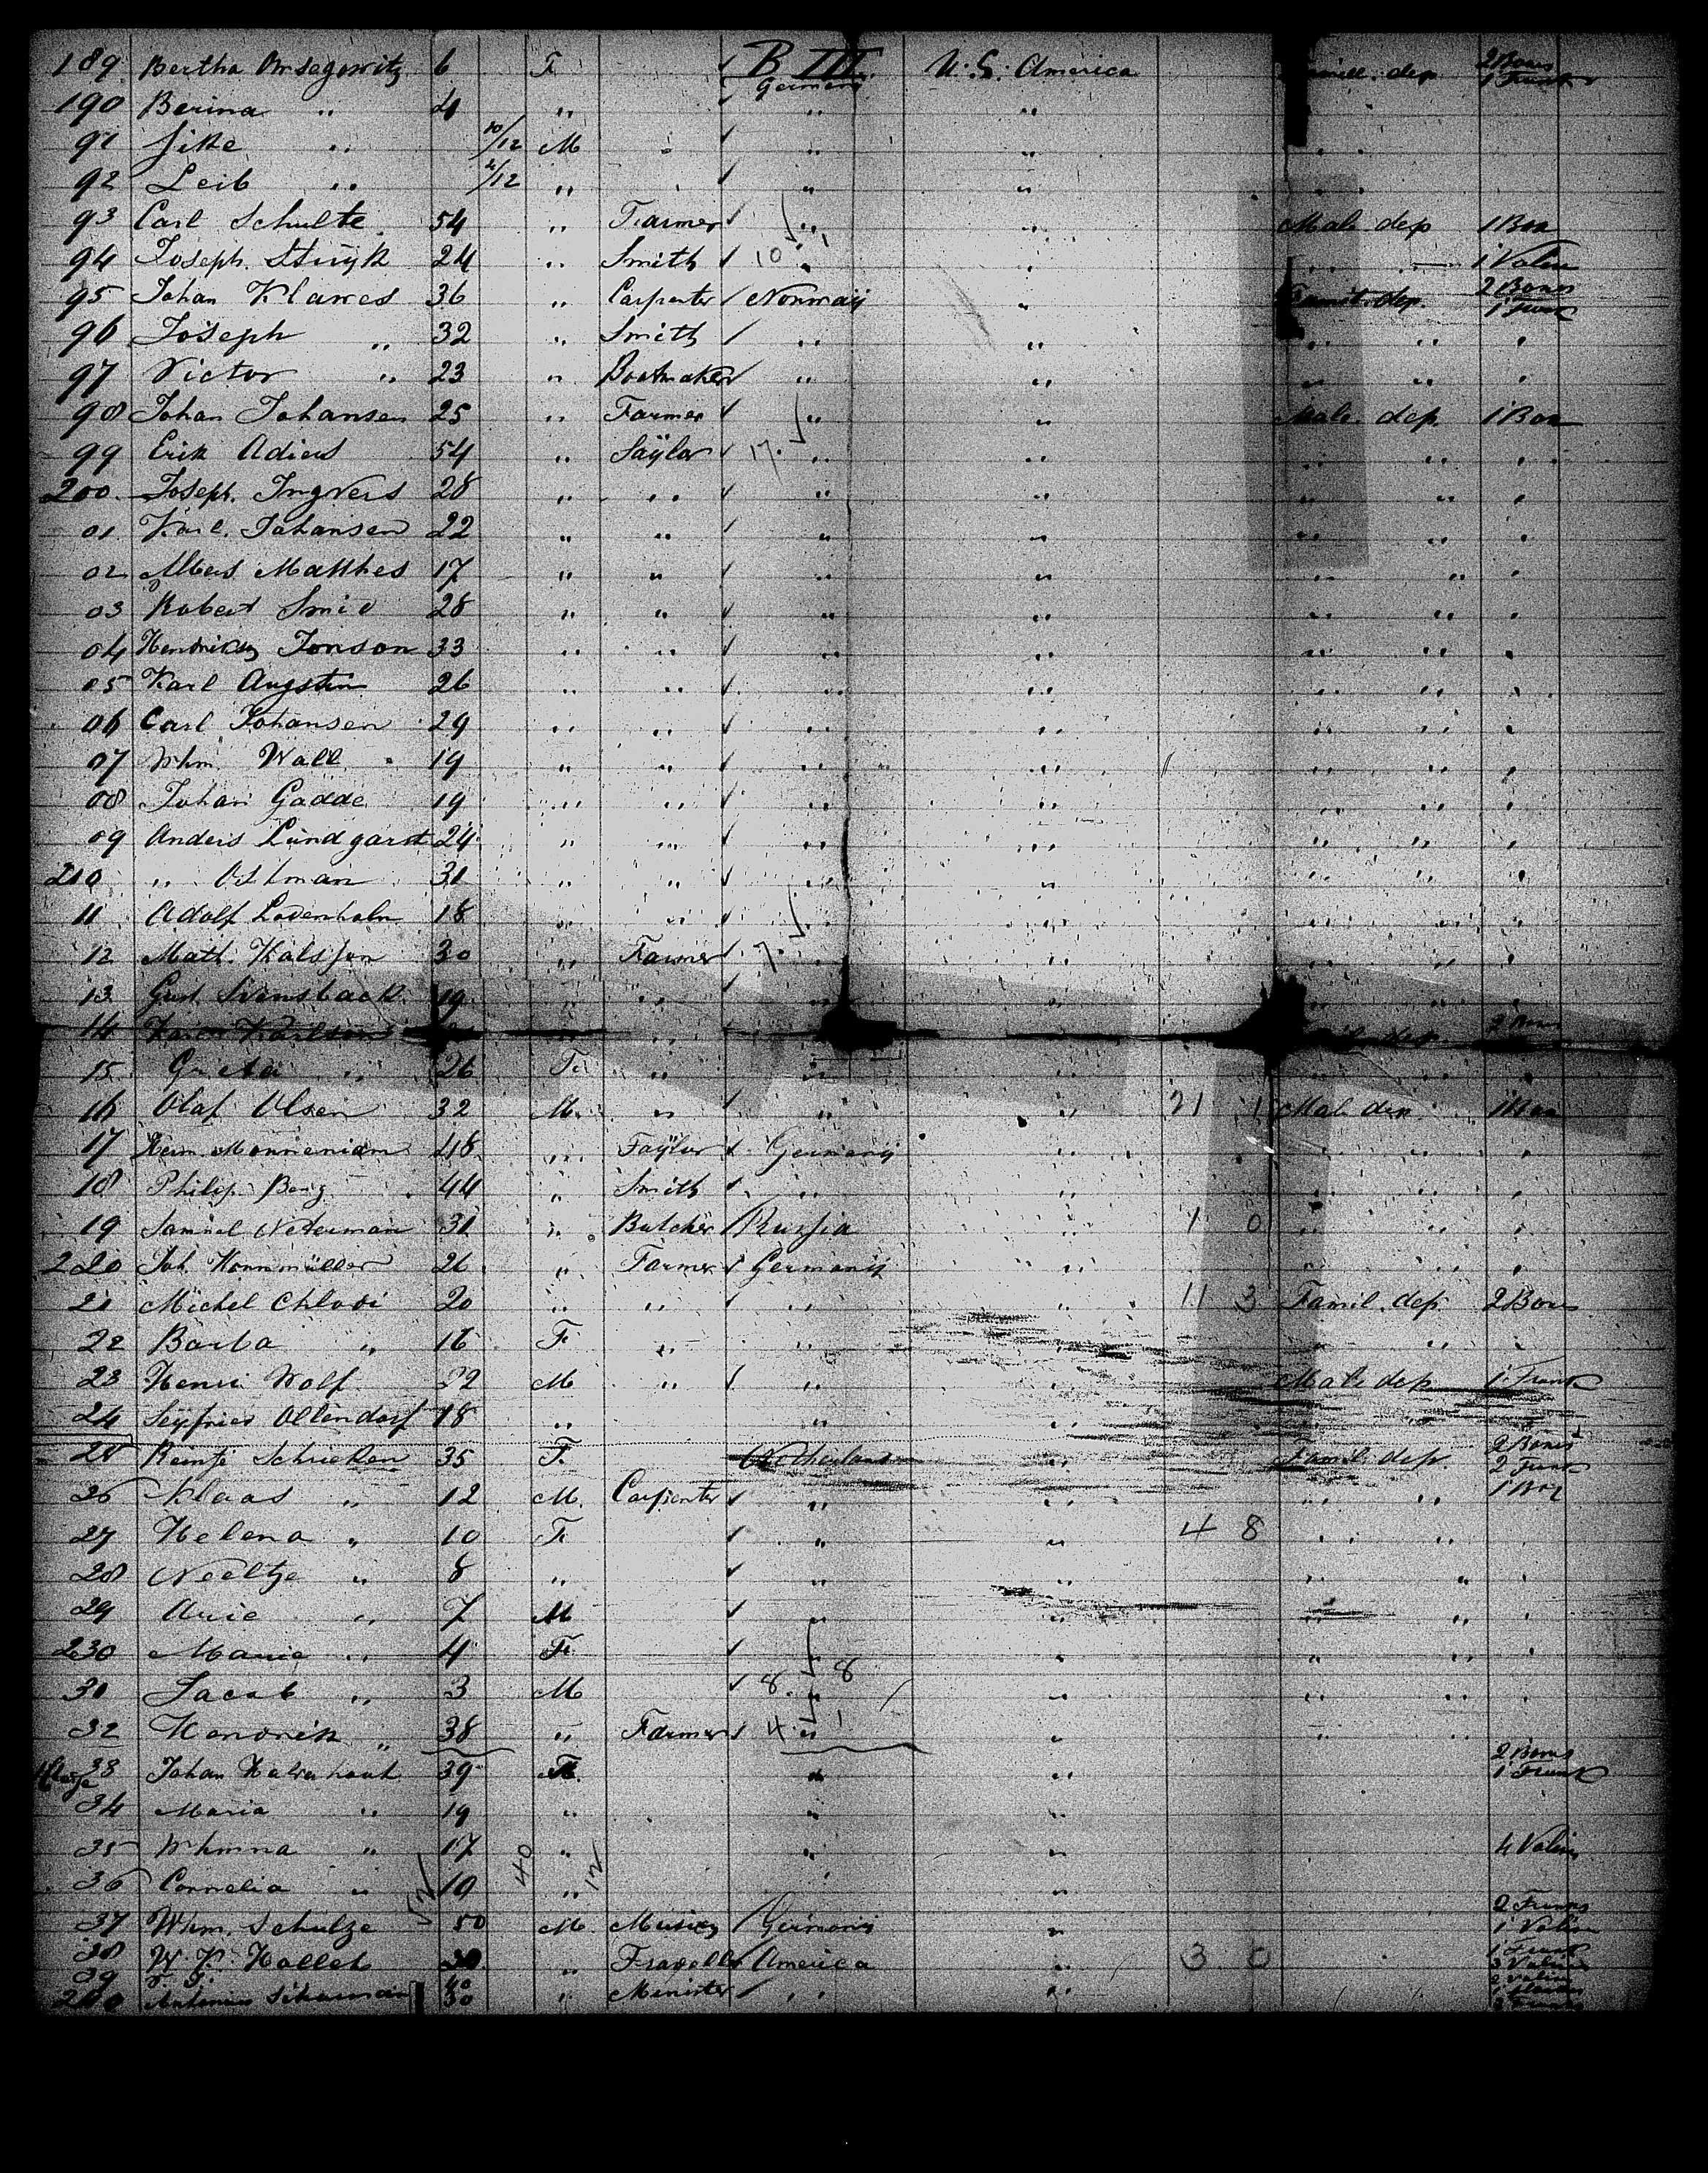 189 Bertha 6 F B III. Germany U. S. America Famill. dep. 2 Boxes 1 Trunk
190 Berina " 4 " " "
91 Jike " 10/12 M " "
92 Leib " /12 " " "
93 Carl Schulte 54 " Farmer " " Male dep 1 Box
94 Joseph 24 " Smith 10 " " " 1 Valise
95 Johan Klawes 36 " Carpenter Norway " Famil. dep. 2 Boxes 1 Trunk
96 Joseph " 32 " Smith " " " " "
97 Victor " 23 " Bootmaker " " " " "
98 Johan Johansen 25 " Farmer " " Male dep. 1 Box
99 Erik Adiers 54 " Saylor 17 " " " " "
200 Joseph. Ingvers 28 " " " " " " "
01 Karl. Johansen 22 " " " " " " "
02 Matthes 17 " " " " " " "
03 Robert Smid 28 " " " " " " "
04 Jonson 33 " " " " " " "
05 Karl Augstin 26 " " " " " " "
06 Carl Johansen 29 " " " " " " "
07 Whm. Wall 19 " " " " " " "
08 Johan Gadde 19 " " " " " " "
09 Anders Lundgarst 24 " " " " " " "
210 " Ostman 31 " " " " " " "
11 Adolf Lodenholm 18 " " " " " " "
12 Matt. Kalsson 30 " Farmer 7. " " " " "
13 Gust. Svensback 19 " " " " " " "
14 Karlson " " " "
15 Greta " 26 F. " " " " "
16 Olaf Olsen 32 M. " " " 21 1 Male dep 1 Box
17 Herm. 48 " Taylor Germany " " " "
18 Philip Berg 44 " Smith " " " " "
19 Samuel Neterman 31 " Butcher Russia " 1 0 " " "
220 Joh. Hornmüller 26 " Farmer Germany " " " "
21 Michel Chlodi 20 " " " " 11 3 Famil. dep. 2 Boxes
22 Barba " 16 F. " " " " " "
23 Henri Wolf 22 M " " " Male dep 1 Trunk
24 Seyfried Ollendorf 18 " " " " " "
25 Reintje Schrieken 35 F. Netherland " Famil. dep 2 Boxes 2 Trunk
26 Klaas " 12 M. Carpenter " " " " 1 Box
27 Helena " 10 F " " 4 8 " "
28 Neeltje " 8 " " " " " "
29 Arie " 7 M " " " " "
230 Marie " 4 F " " " " "
31 Jacob " 3 M 8. " 8 " " " "
32 Hendrik " 38 " Farmer 4. " 1 " " " "
33 Johan 39 M. " " 2 Boxes 1 Trunk
34 Maria " 19 " " "
35 Whmna " 17 " " " 4 Valise
36 Cornelia " 10 " " "
52 40 12
37 Whm. Schulze 50 M. Germany " 2 Trunks 1 Valise
38 W. P. Hallet 30 " Travell. America " 3 0 1 Trunk 3 Valise
39 40
240 Antonius 30 " Minister " "